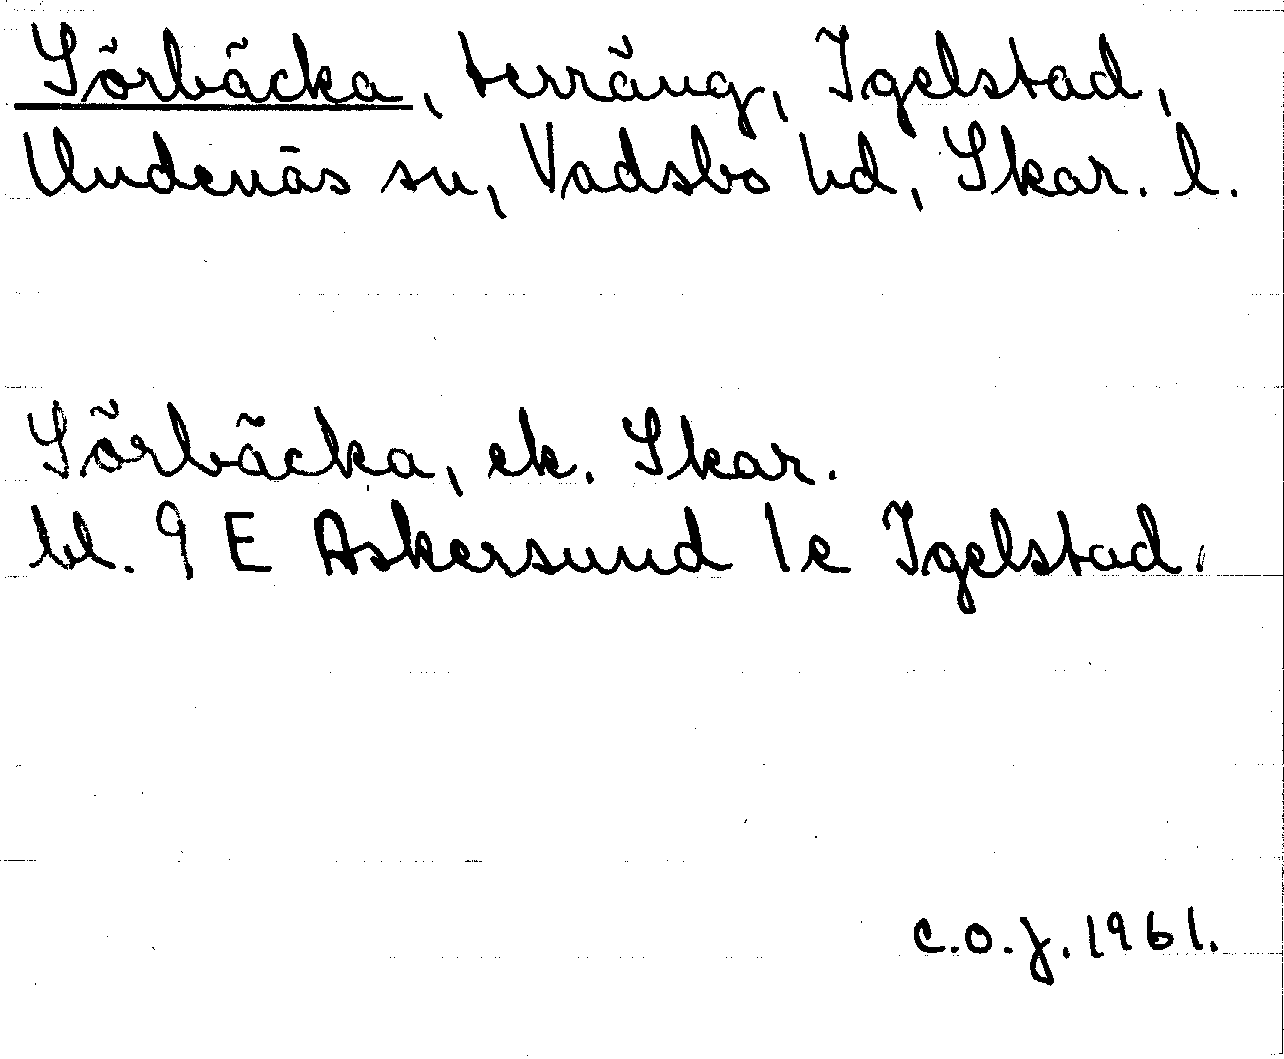 Sörbäcka, terräng, Igelstad,
Undenäs sn, Vadsbo hd, Skar. l.
Sörbäcka, ek. Skar.
bl. 9 E Askersund 1c Igelstad.
C.O.J. 1961.